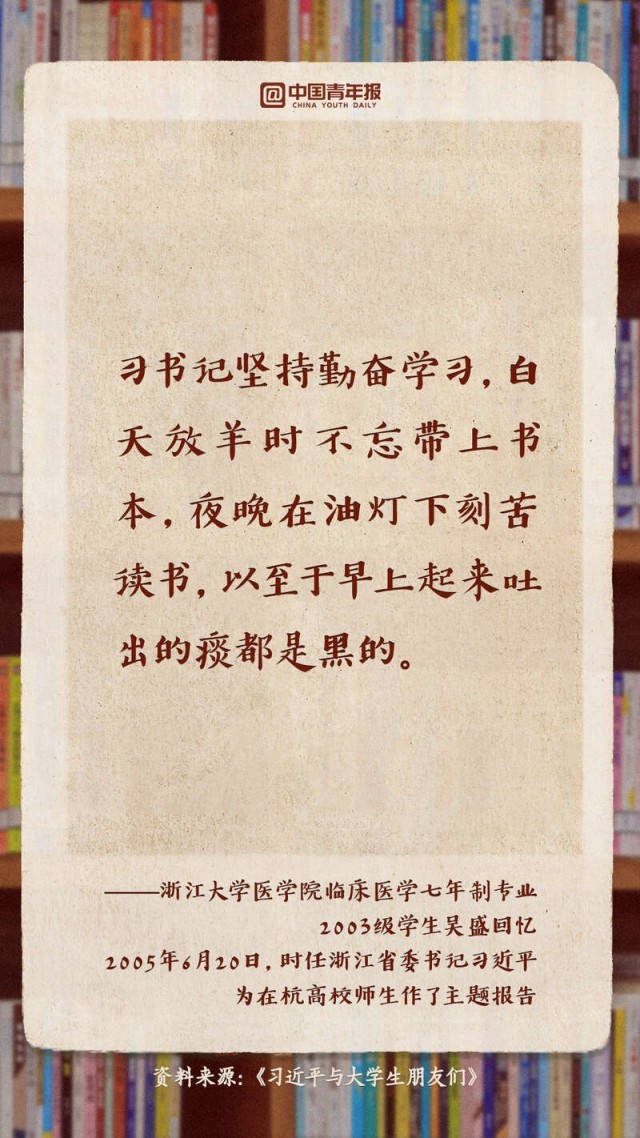 @中国青年报
CHINA YOUTH DAILY
习书记坚持勤奋学习，白
天放羊时不忘带上书
本，夜晚在油灯下刻苦
读书，以至于早上起来吐
出的痰都是黑的。
——浙江大学医学院临床医学七年制专业
2003级学生吴盛回忆
2005年6月20日，时任浙江省委书记习近平
为在杭高校师生作了主题报告
资料来源：《习近平与大学生朋友们》